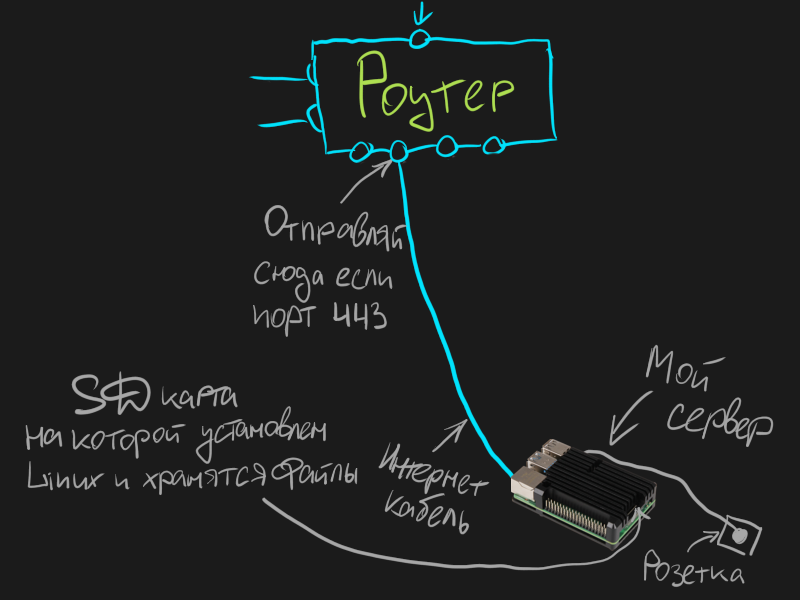 Роутер
Отправляй
сюда если
порт 443
SD карта
на которой установлен
Linux и хранятся файлы
Интернет
кабель
Мой
сервер
Розетка